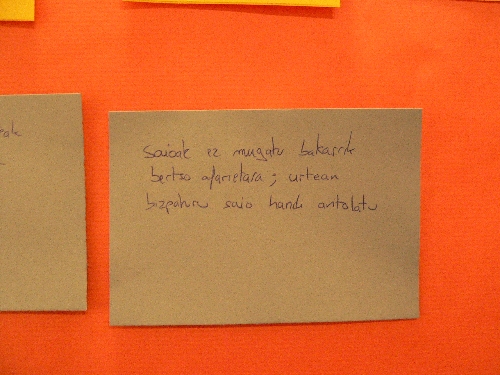 saioak ez mugatu bakarrik
bertso afarietara; urtean
bizpahiru saio handi antolatu